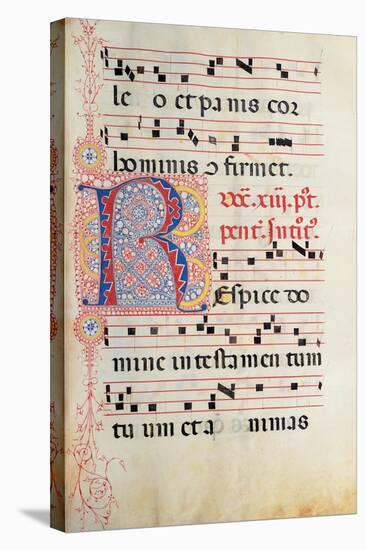 le o et pa nis cor
hominis ɔ firmet.
xiij. pt̄.
pent̄. Introit̄⁹.
REspice do
mine in testamen tum
tu um et a nimas